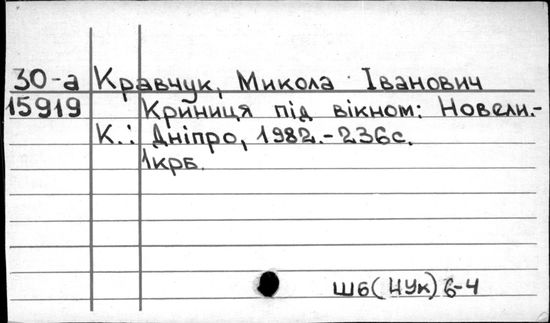 30-а Кравчук, Микола Іванович
15919 Криниця під вікном: Новели.-
К.: Дніпро, 1982.-236с.
1крб.
Ш6(4Ук)6-4